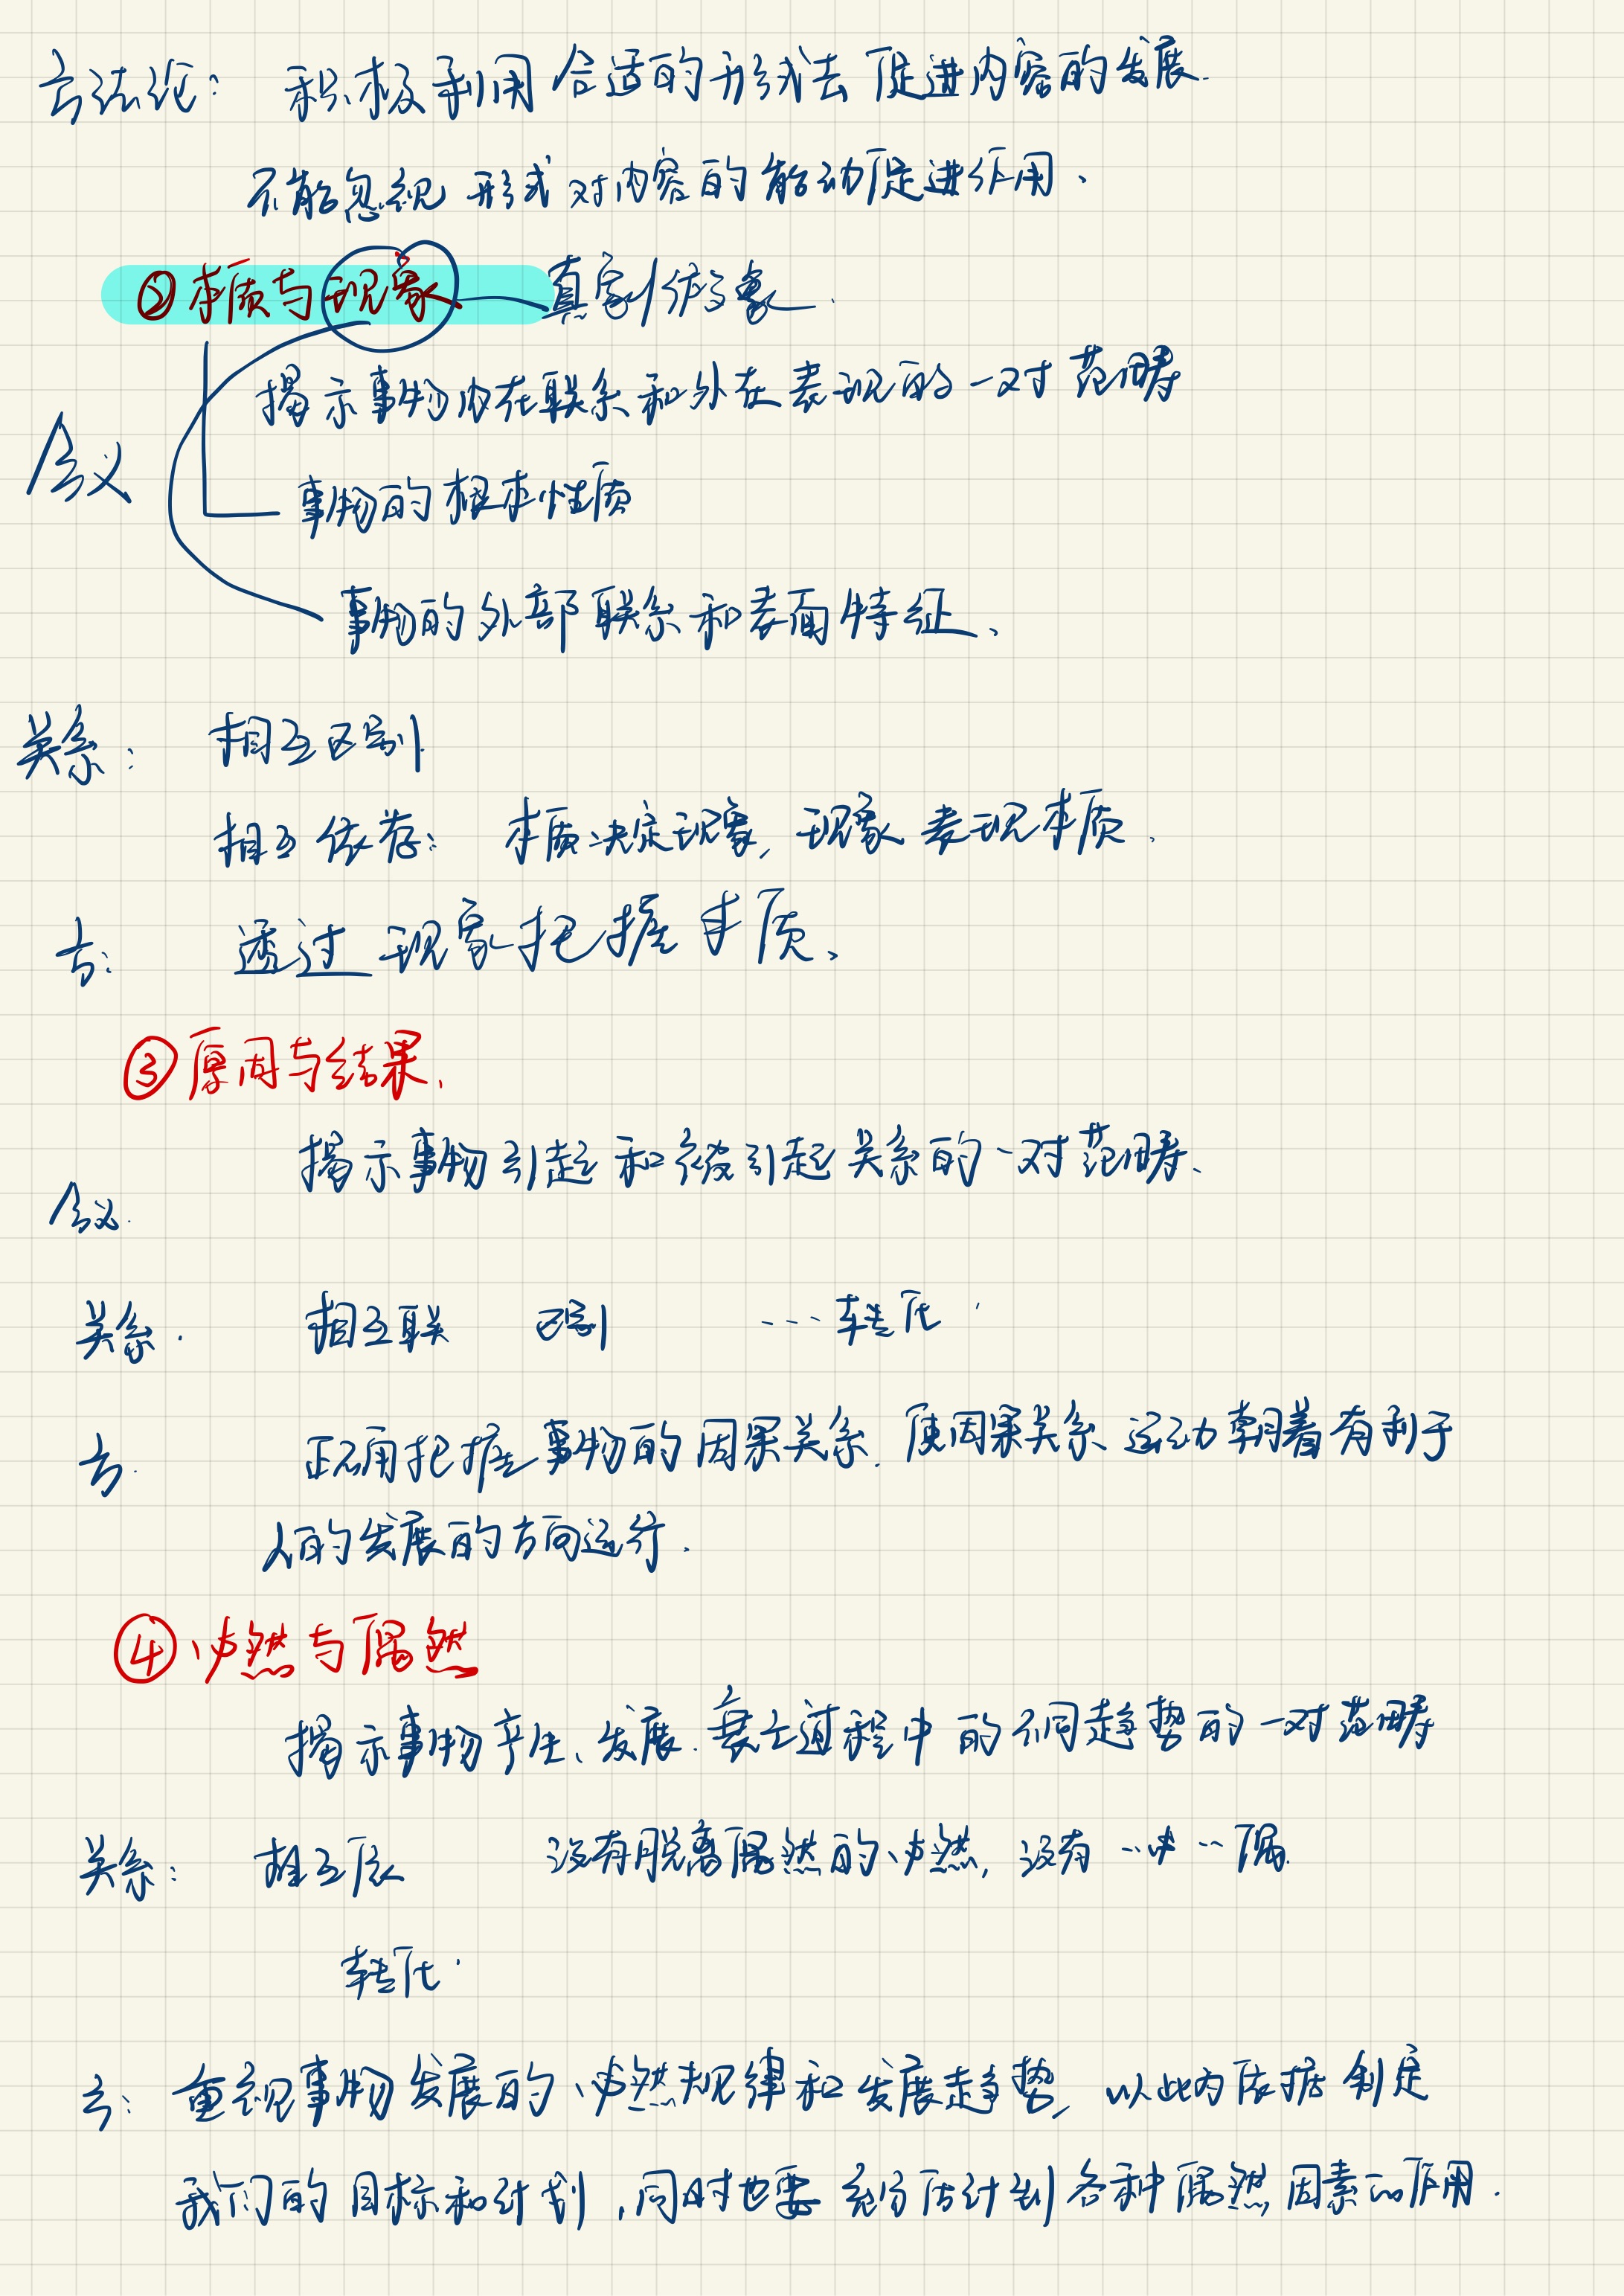 方法论： 积极利用合适的形式去促进内容的发展.
不能忽视形式对内容的能动促进作用、
②本质与现象 真象/假象.
揭示事物内在联系和外在表现的一对范畴
含义
事物的根本性质
事物的外部联系和表面特征、
关系： 相互区别.
相互依存： 本质决定现象, 现象表现本质.
方： 透过现象把握本质、
③原因与结果、
揭示事物引起和被引起关系的一对范畴、
含义.
关系. 相互联 区别 ---转化.
方. 正确把握事物的因果关系. 使因果关系运动朝着有利于
人的发展的方向运行.
④必然与偶然
揭示事物产生、发展.衰亡过程中的不同趋势的一对范畴
关系： 相互依 没有脱离偶然的必然, 没有…必…偶.
转化.
方： 重视事物发展的必然规律和发展趋势, 以此为依据制定
我们的目标和计划,同时也要充分估计到各种偶然因素的作用.